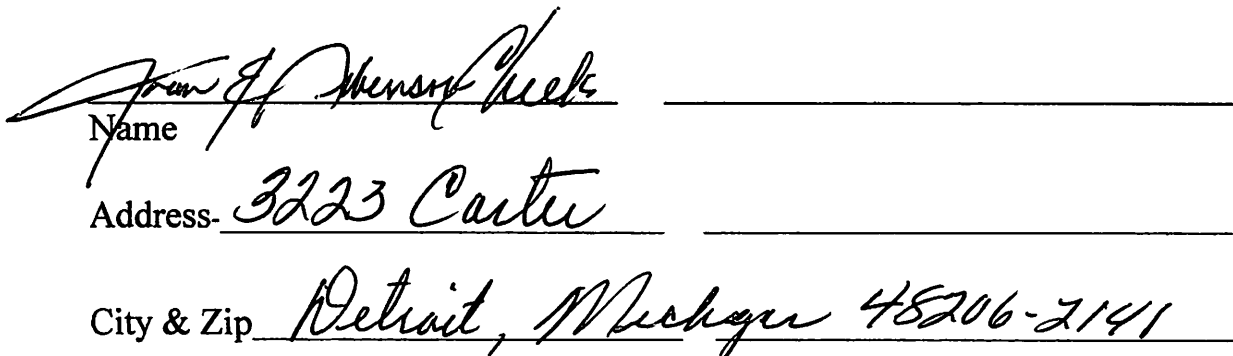 Cheeks
Name
Address- 3223 Carter
City & Zip Detroit, Michigan 48206-2141